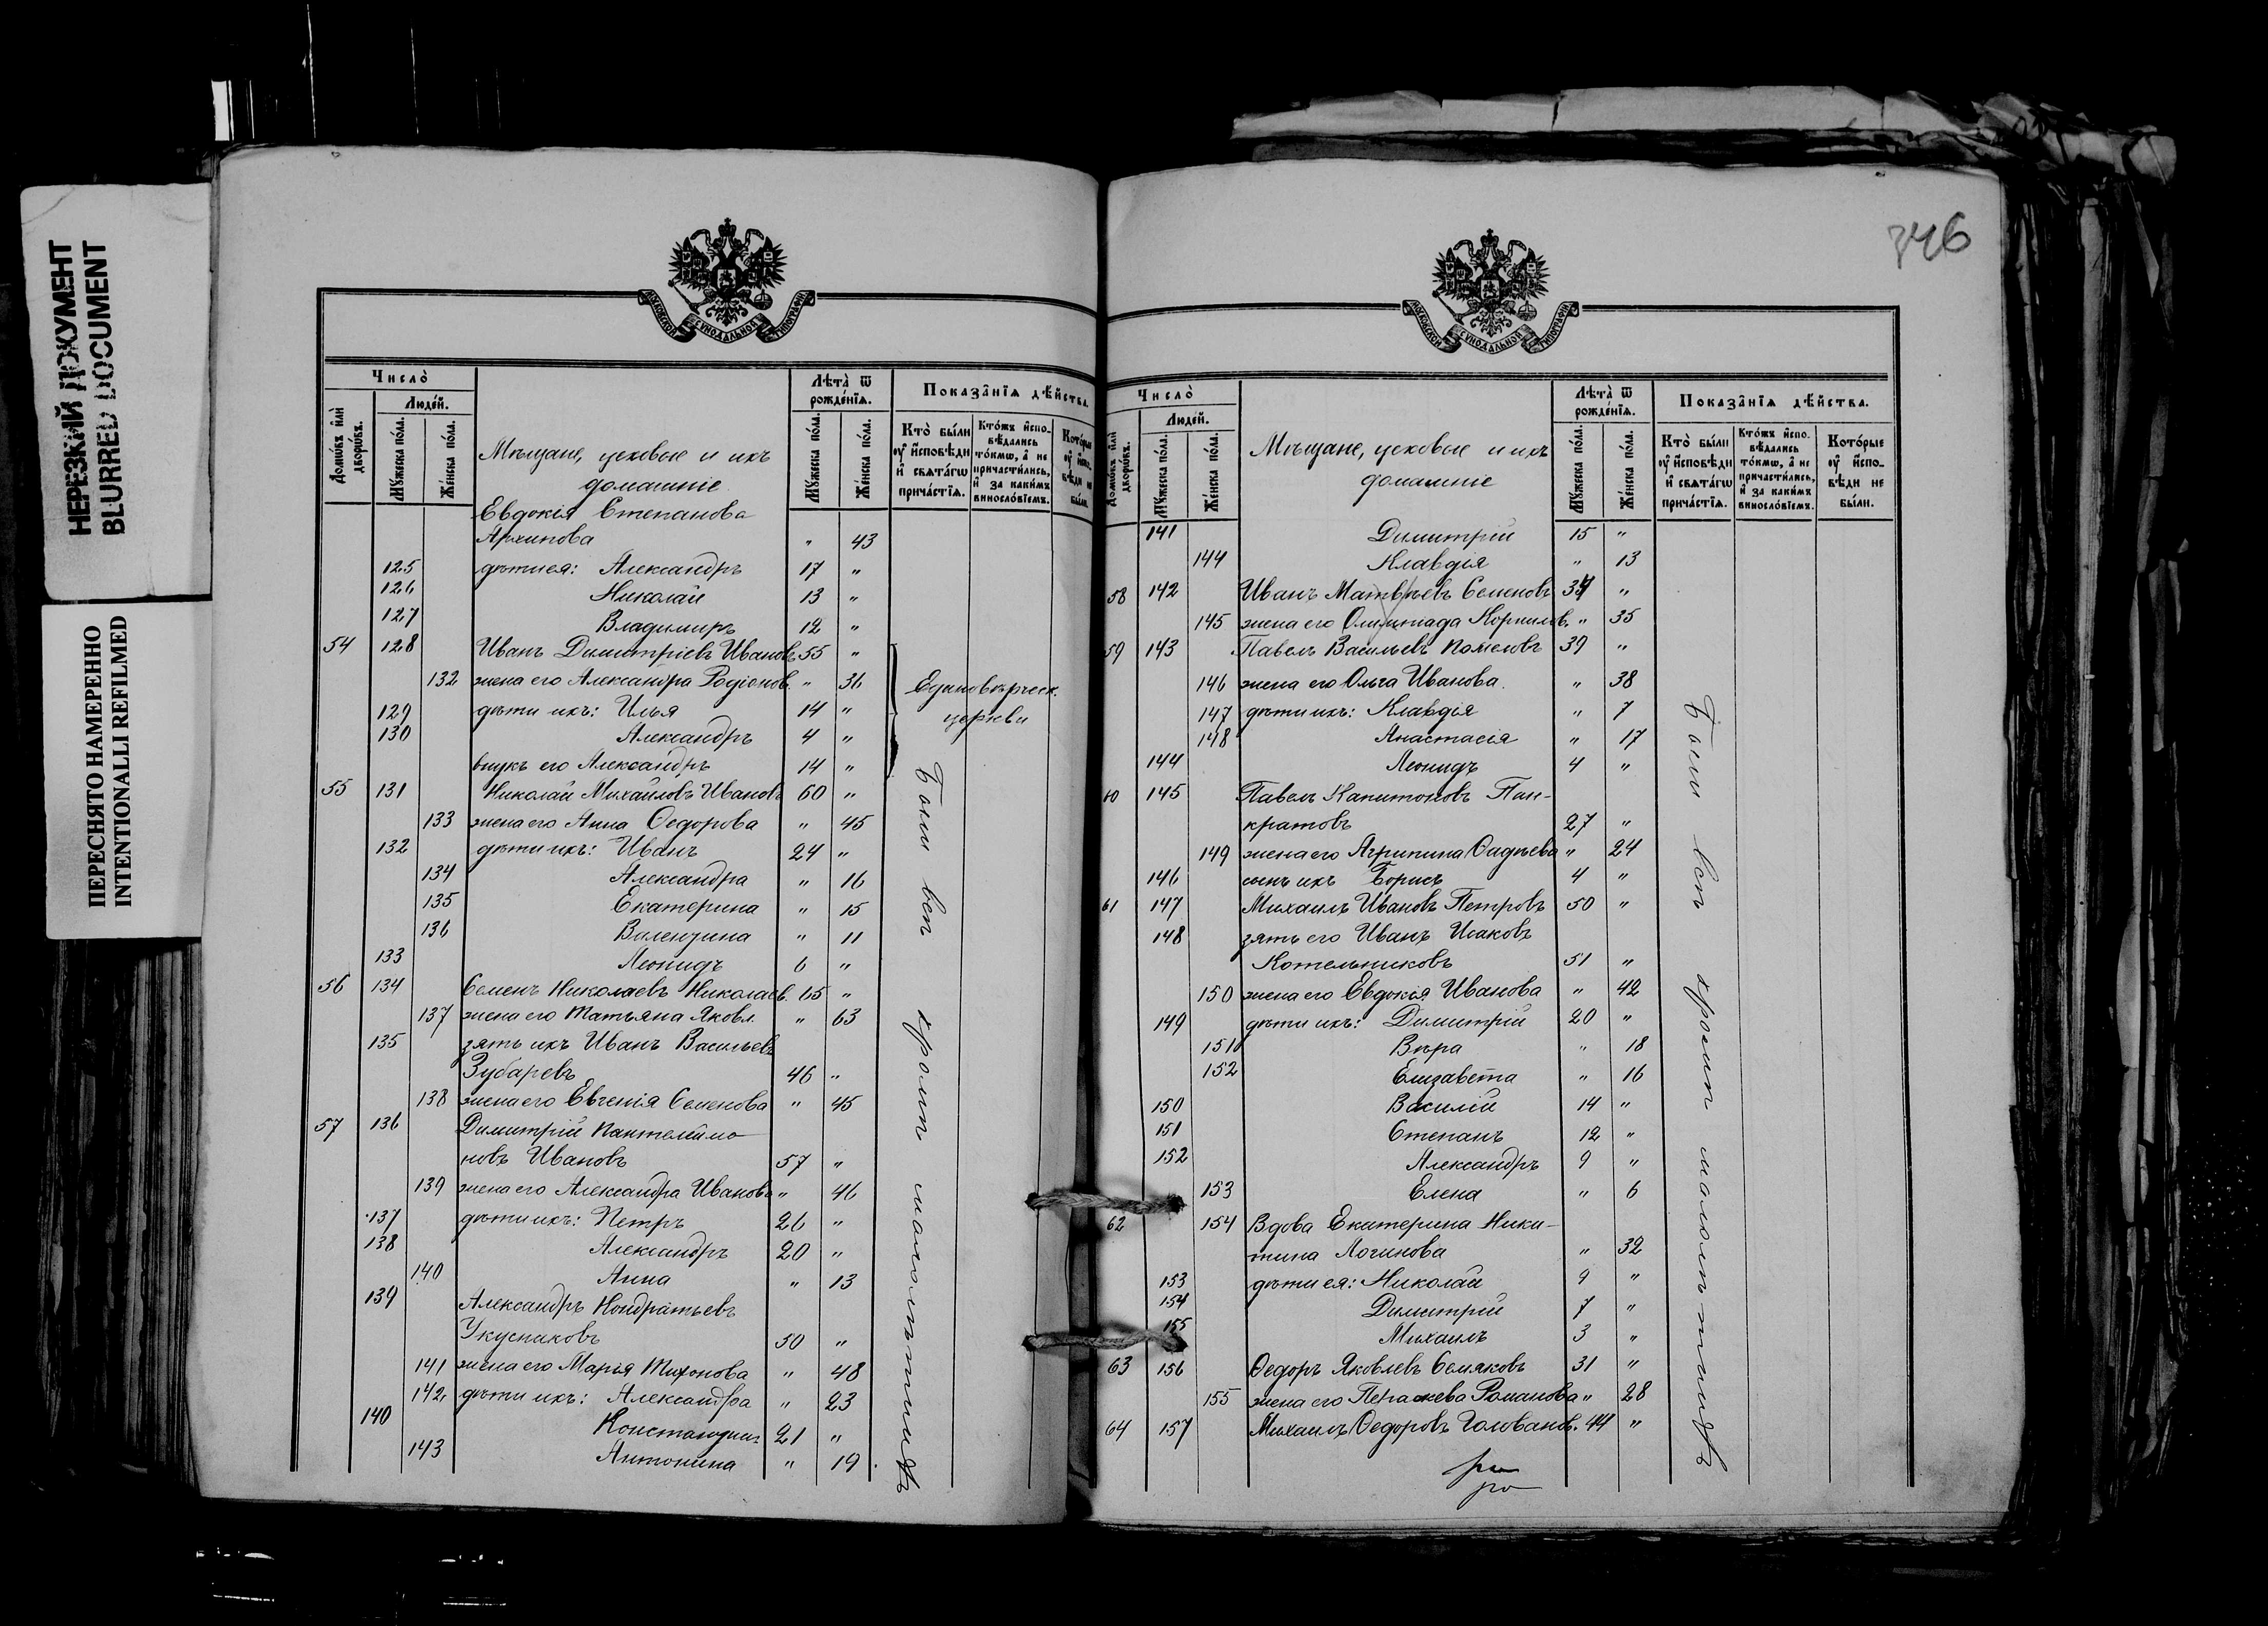 НЕРЕЗКИЙ ДОКУМЕНТ
BLURRED DOCUMENT
ПЕРЕСНЯТО НАМЕРЕННО
INTENTIONALLI REFILMED
МОСКОВСКОЙ СѴНОДАЛЬНОЙ ТИПОГРАФІИ
Число̀
Домѡ́въ и҆лѝ дворѡ́въ.
Люде́й.
Мꙋ́жеска по́ла.
Же́нска по́ла.
Мѣщане, цеховые и ихъ
домашніе
Лѣта̀ ѿ рожде́нїѧ.
Мꙋ́жеска по́ла.
Же́нска по́ла.
Показа̑нїѧ дѣ́йства.
Кто̀ бы́ли ᲂу҆ и҆сповѣ́ди и҆ свѧта́гѡ прича́стїѧ.
Кто́жъ и҆спо-вѣ́дались то́кмѡ, а҆ не причасти́лись, и҆ за каки́мъ винословїемъ.
Кото́рые ᲂу҆ и҆спо-вѣ́ди не бы́ли.
Евдокія Степанова
Архипова " 43
125 дѣти ея: Александръ 17 "
126 Николай 13 "
127 Владимиръ 12 "
54 128 Иванъ Димитріевъ Ивановъ 55 "
132 жена его Александра Родіонов. " 36
Единовѣрческ.
церкви
129 дѣти ихъ: Илья 14 "
130 Александръ 4 "
внукъ его Александръ 14 "
55 131 Николай Михайловъ Ивановъ 60 "
133 жена его Анна Ѳедорова " 45
132 дѣти ихъ: Иванъ 24 "
134 Александра " 16
135 Екатерина " 15
136 Валентина " 11
133 Леонидъ 6 "
56 134 Семенъ Николаевъ Николаев. 65 "
137 жена его Татьяна Яковл. " 63
135 зять ихъ Иванъ Васильевъ
Зубаревъ 46 "
138 жена его Евгенія Семенова " 45
57 136 Димитрій Пантелеймо-
новъ Ивановъ 57 "
139 жена его Александра Иванова " 46
137 дѣти ихъ: Петръ 26 "
138 Александръ 20 "
140 Анна " 13
139 Александръ Кондратьевъ
Укусниковъ 50 "
141 жена его Марья Тихонова " 48
142 дѣти ихъ: Александра " 23
140 Константинъ 21 "
143 Антонина " 19
Были всѣ кромѣ малолѣтнихъ
346
МОСКОВСКОЙ СѴНОДАЛЬНОЙ ТИПОГРАФІИ
Число̀
Домѡ́въ и҆лѝ дворѡ́въ.
Люде́й.
Мꙋ́жеска по́ла.
Же́нска по́ла.
Мѣщане, цеховые и ихъ
домашніе
Лѣта̀ ѿ рожде́нїѧ.
Мꙋ́жеска по́ла.
Же́нска по́ла.
Показа̑нїѧ дѣ́йства.
Кто̀ бы́ли ᲂу҆ и҆сповѣ́ди и҆ свѧта́гѡ прича́стїѧ.
Кто́жъ и҆спо-вѣ́дались то́кмѡ, а҆ не причасти́лись, и҆ за каки́мъ винословїемъ.
Кото́рые ᲂу҆ и҆спо-вѣ́ди не бы́ли.
141 Димитрій 15 "
144 Клавдія " 13
58 142 Иванъ Матвѣевъ Семеновъ 37 "
145 жена его Олимпіада Корнилов. " 35
59 143 Павелъ Васильевъ Помеловъ 39 "
146 жена его Ольга Иванова " 38
147 дѣти ихъ: Клавдія " 7
148 Анастасія " 17
144 Леонидъ 4 "
60 145 Павелъ Капитоновъ Пан-
кратовъ 27 "
149 жена его Агрипина Ѳадѣева " 24
146 сынъ ихъ Борисъ 4 "
61 147 Михаилъ Ивановъ Петровъ 50 "
148 зять его Иванъ Исаковъ
Котельниковъ 51 "
150 жена его Евдокія Иванова " 42
149 дѣти ихъ: Димитрій 20 "
151 Вѣра " 18
152 Елизавета " 16
150 Василій 14 "
151 Степанъ 12 "
152 Александръ 9 "
153 Елена " 6
62 154 Вдова Екатерина Ники-
тина Логинова " 32
153 дѣти ея: Николай 9 "
154 Димитрій 7 "
155 Михаилъ 3 "
63 156 Ѳедоръ Яковлевъ Семяковъ 31 "
155 жена его Параскева Романова " 28
64 157 Михаилъ Ѳедоровъ Голованов. 44 "
Были всѣ кромѣ малолѣтнихъ